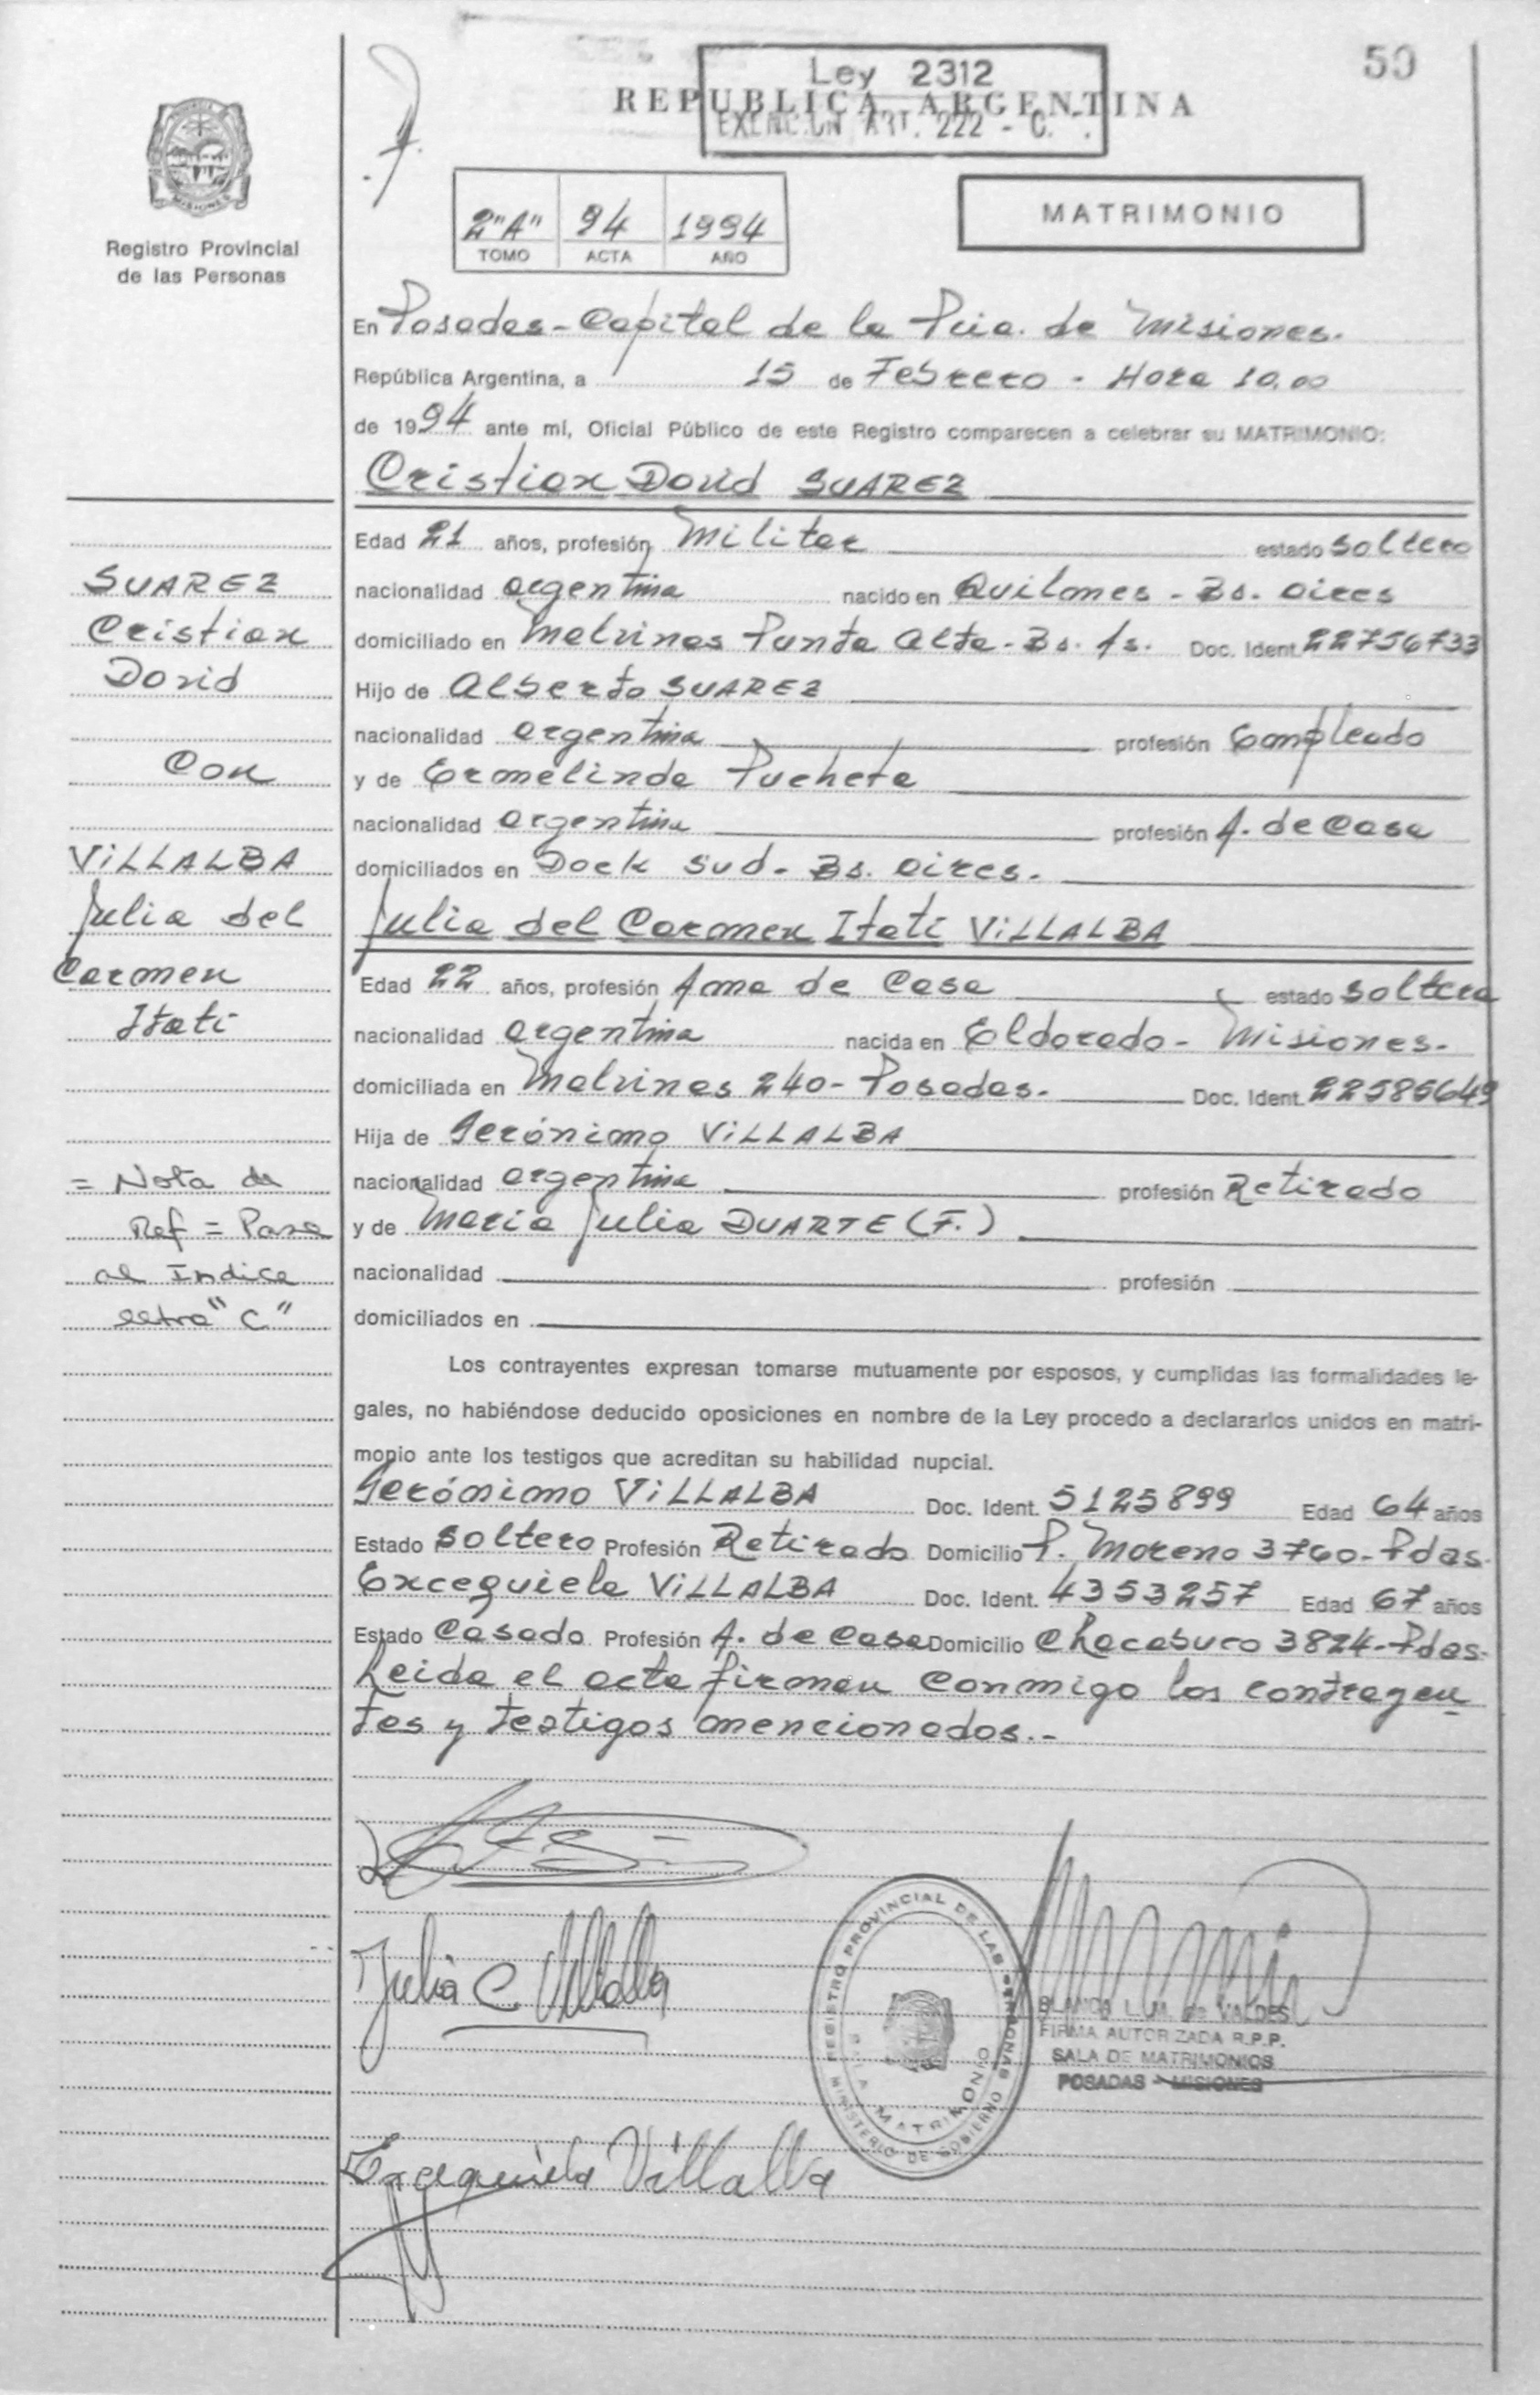 50
Ley 2312
REPUBLICA ARGENTINA
EXENCION ART. 222 - C.
2"A" 94 1994
TOMO ACTA AÑO
MATRIMONIO
Registro Provincial
de las Personas
En Posadas - Capital de la Pcia. de Misiones.
República Argentina, a 15 de Febrero - Hora 10,00
de 1994 ante mí, Oficial Público de este Registro comparecen a celebrar su MATRIMONIO:
Cristian David SUAREZ
Edad 21 años, profesión Militar estado soltero
nacionalidad argentina nacido en Quilmes - Bs. Aires
domiciliado en Malvinas Punta Alta - Bs. As. Doc. Ident. 22756733
Hijo de Alberto SUAREZ
nacionalidad argentina profesión Empleado
y de Ermelinda Pucheta
nacionalidad argentina profesión A. de Casa
domiciliados en Dock Sud - Bs. Aires.
Julia del Carmen Itatí VILLALBA
Edad 22 años, profesión Ama de Casa estado soltera
nacionalidad argentina nacida en Eldorado - Misiones.
domiciliada en Malvinas 240 - Posadas. Doc. Ident. 22585649
Hija de Gerónimo VILLALBA
nacionalidad argentina profesión Retirado
y de Maria Julia DUARTE (F.)
nacionalidad profesión
domiciliados en
Los contrayentes expresan tomarse mutuamente por esposos, y cumplidas las formalidades le-
gales, no habiéndose deducido oposiciones en nombre de la Ley procedo a declararlos unidos en matri-
monio ante los testigos que acreditan su habilidad nupcial.
Gerónimo VILLALBA Doc. Ident. 5125899 Edad 64 años
Estado soltero Profesión Retirado Domicilio P. Moreno 3760 - Pdas.
Excequiela VILLALBA Doc. Ident. 4353257 Edad 67 años
Estado Casado Profesión A. de Casa Domicilio Chacabuco 3824 - Pdas.
Leida el acta firman conmigo los contrayen
tes y testigos mencionados.-
SUAREZ
Cristian
David
Con
VILLALBA
Julia del
Carmen
Itatí
= Nota de
Ref = Pasa
al Indice
letra "C"
Julia C Villalba
Excequiela Villalba
REGISTRO PROVINCIAL DE LAS PERSONAS
MINISTERIO DE GOBIERNO
MATRIMONIO
BLANCA L. M. de VALDES
FIRMA AUTORIZADA R.P.P.
SALA DE MATRIMONIOS
POSADAS - MISIONES